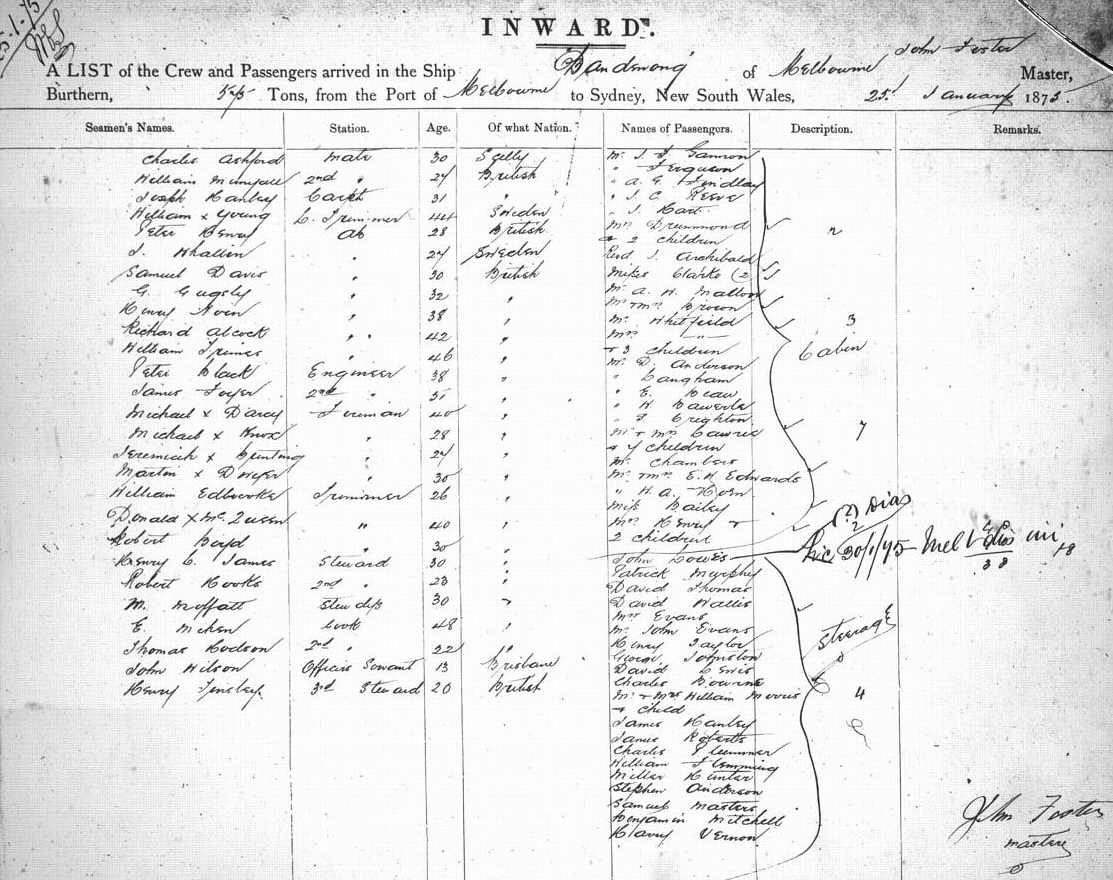 25-1-75
INWARD.
A LIST of the Crew and Passengers arrived in the Ship Dandenong of Melbourne John Foster Master,
Burthern, Tons, from the Port of Melbourne to Sydney, New South Wales, 25 January 1875.
Seamen's Names. Station. Age. Of what Nation. Names of Passengers. Description. Remarks.
Charles Ashford Mate 30 Scilly
William 2nd " 27 British
Joseph Hanley Carpt 31 "
William x Young L. Trimmer 44 Sweden
Peter Henry AB 28 British
J. Whallin " 27 Sweden
Samuel Davis " 30 British
G. " 32 "
Henry " 38 "
Richard Alcock " " 42 "
William " 46 "
Peter Black Engineer 38 "
James 2nd " "
Michael x Darcy Fireman 40 "
Michael x Knox " 28 "
Jeremiah x " 27 "
Martin x Dwyer " 30 "
William Edbrooke Trimmer 26 "
Donald x McQueen " 40 "
Robert Boyd " 30 "
Henry C. James Steward 30 "
Robert Hooks 2nd " 23 "
M. Moffatt Stewdss 30 "
E. Cook 48 "
Thomas Hodson 2nd " 22 "
John Wilson Officers Servant 13 Brisbane
Henry Tinsley 3rd Steward 20 British
Mr J. Gannon
" Ferguson
" A. G. Findlay
" J. C. Reeve
" J. Hart
Mrs Drummond
+ 2 children 2
Revd J. Archibald
Misses Clarke (2)
Mr A. H. Malloon
Mr + Mrs Brown
Mr Whitfield 3
Mrs "
+ 3 children Cabin
Mr D. Anderson
" Langham
" E.
" H
" Creighton
Mr + Mrs Lawrie 7
+ 7 children
Mr Chambers
Mr + Mrs E. H. Edwards
" H. A. Horn
Miss Bailey
Mrs Henry +
2 children
(?) Dias
2
30/1/75 Mel
38
John Lowes
Patrick Murphy
David Thomas
David Wallis
Mrs Evans
Mr John Evans
Henry Taylor Steerage
George Johnston
David Lewis
Charles Bourne
Mr + Mrs William Morris 4
+ child
James Hanley
James Roberts
Charles Plummer
William Flemming
Miller Hunter
Stephen Anderson
Samuel Masters
Benjamin Mitchell
Harry Vernon
John Foster
master